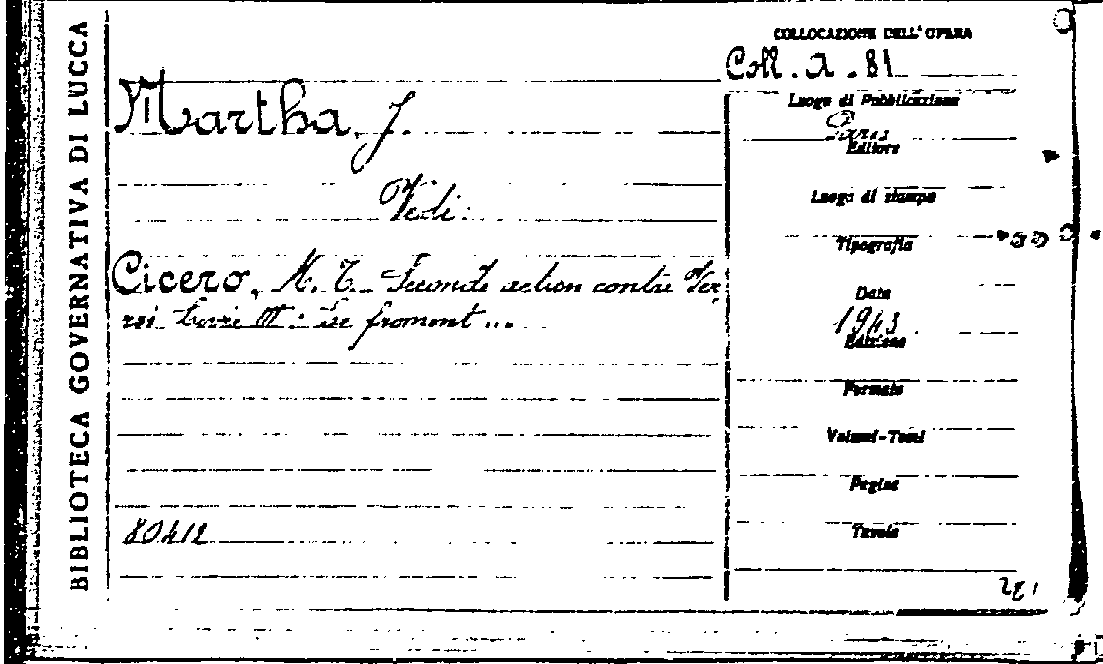 BIBLIOTECA GOVERNATIVA DI LUCCA
COLLOCAZIONE DELL'OPERA
Coll. A. 81
Martha, J.
Vedi:
Cicero, M. T. Seconde action contre Ver
roi Livre III: De froment...
80412
Luogo di Pubblicazione
Paris
Editore
Luogo di stampa
Tipografia
Data
1943
Edizione
Formato
Volumi-Tomi
Pagine
Tavole